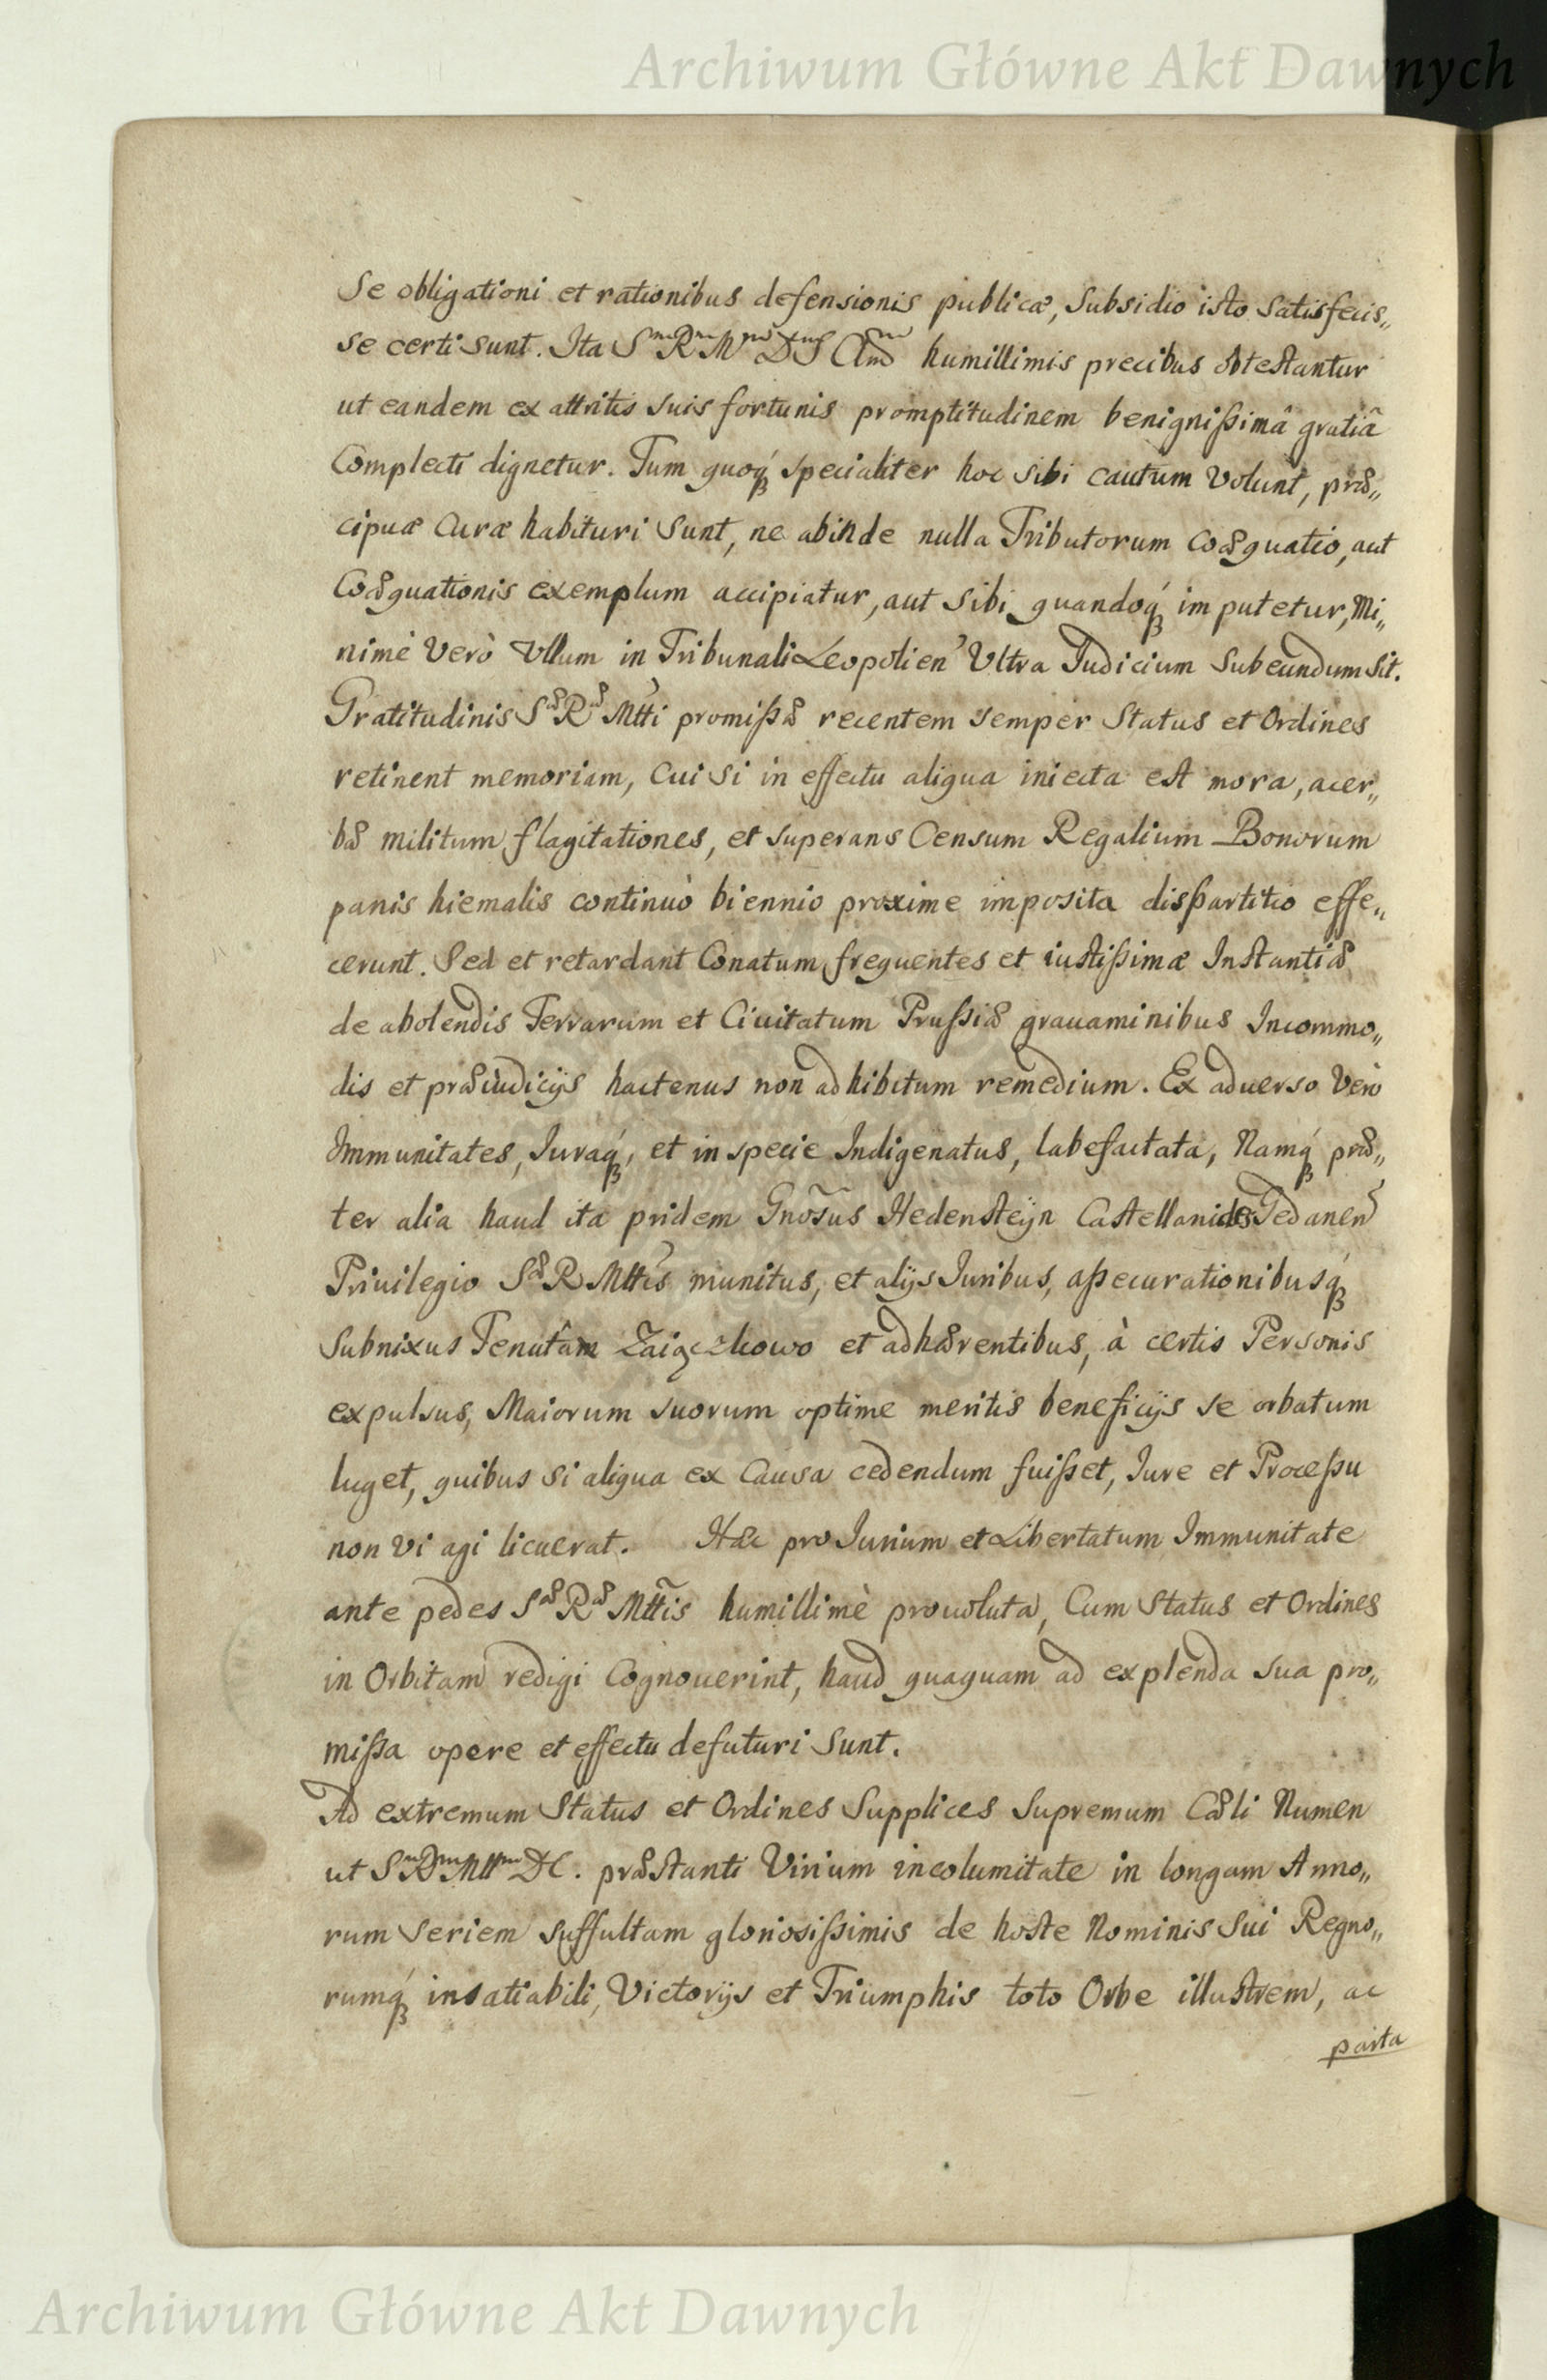 Archiwum Główne Akt Dawnych
Se obligationi et rationibus defensionis publicæ, Subsidio isto Satisfecis„
se certi sunt. Ita S^m R^m M^m D^m humillimis precibus obtestantur
ut eandem ex attritis suis fortunis promptitudinem benignißimâ gratiâ
Complecti dignetur. Tum quoq́ꝫ specialiter hoc sibi cautum Volunt, præ„
cipuæ Curæ habituri Sunt, ne abinde nulla Tributorum Coæquatio, aut
Coæquationis exemplum accipiatur, aut Sibi quandoq́ꝫ imputetur, Mi„
nimè Verò Vllum in Tribunali Leopolien̉ Vltra Iudicium Subeundum Sit.
Gratitudinis S^æ R^æ Mtti promißæ recentem semper Status et Ordines
retinent memoriam, Cui Si in effectu aliqua iniecta est mora, acer„
bæ militum flagitationes, et superans Censum Regalium Bonorum
panis hiemalis continuò biennio proxime imposita dispartitio effe„
cerunt. Sed et retardant Conatum frequentes et iustißimæ Instantiæ
de abolendis Terrarum et Ciuitatum Prußiæ grauaminibus Incommo„
dis et præiudicijs hactenus non adhibitum remedium. Ex aduerso Verò
Immunitates, Iuraq́ꝫ, et in specie Indigenatus, labefactata, Namq́ꝫ præ„
ter alia haud ita pridem Gnõsus Hedensteijn Castellanides Gedanen̉
Priuilegio S^æ R Mttis munitus, et alijs Iuribus, aßecurationibusq́ꝫ
Subnixus Tenutam Zaiączkowo et adhærentibus, à certis Personis
expulsus, Maiorum suorum optime meritis beneficijs se orbatum
luget, quibus si aliqua ex Causa cedendum fuißet, Iure et Proceßu
non vi agi licuerat. Hæc pro Iurium et Libertatum Immunitate
ante pedes S^æ R^æ Mttis humillimè prouoluta, Cum Status et Ordines
in Orbitam redigi Cognouerint, haud quaquam ad explenda sua pro„
mißa opere et effectu defuturi Sunt.
Ad extremum Status et Ordines Supplices Supremum Cæli Numen
ut S^m R^m Mtt^m DC. præstanti Virium incolumitate in longam Anno„
rum Seriem Suffultam gloriosißimis de hoste Nominis Sui Regno„
rumq́ꝫ insatiabili, Victorijs et Triumphis toto Orbe illustrem, ac
parta
Archiwum Główne Akt Dawnych